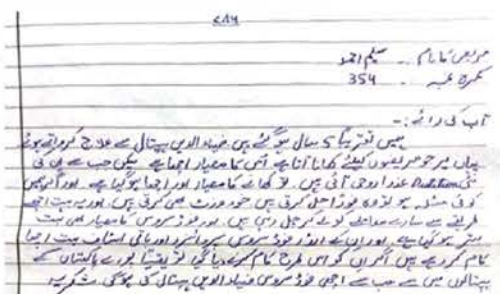 ۷۸۶
مریض کا نام :- سلیم احمد
کمرہ نمبر :- 354
آپ کی رائے :-
ہمیں تقریباً 5 سال ہو گئے ہیں ضیاء الدین ہسپتال سے علاج کرواتے ہوئے
یہاں پر جو مریضوں کیلئے کھانا آتا ہے اُس کا معیار اچھا ہے لیکن جب سے پی کی
نئی عذرا روحی آئی ہیں۔ تو کھانے کا معیار اور اچھا ہو گیا ہے۔ اور اگر ہمیں
کوئی مسئلہ ہو تو وہ فوراً حل کرتی ہیں خود وزٹ بھی کرتی ہیں۔ اور یہ بہت اچھے
طریقے سے سارے معاملے کو لے کر چل رہی ہیں۔ اور فوڈ سروس کا معیار بھی بہت
بہتر ہو گیا ہے۔ اور ان کے انڈر فوڈ سروس سپروائزر اور باقی اسٹاف بہت اچھا
کام کر رہے ہیں اگر ان کو اس طرح کام کرنے دیا گیا تو یقیناً پورے پاکستان کے
ہسپتالوں میں سے سب سے اچھی فوڈ سروس ضیاء الدین ہسپتال کی ہوگی۔ شکریہ